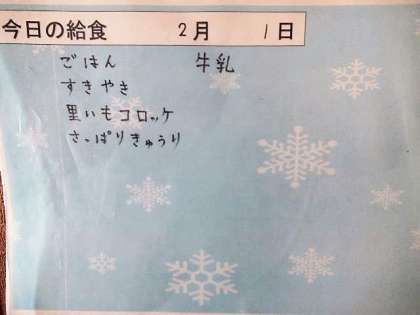 今日の給食 2月 1日
ごはん 牛乳
すきやき
里いもコロッケ
さっぱりきゅうり